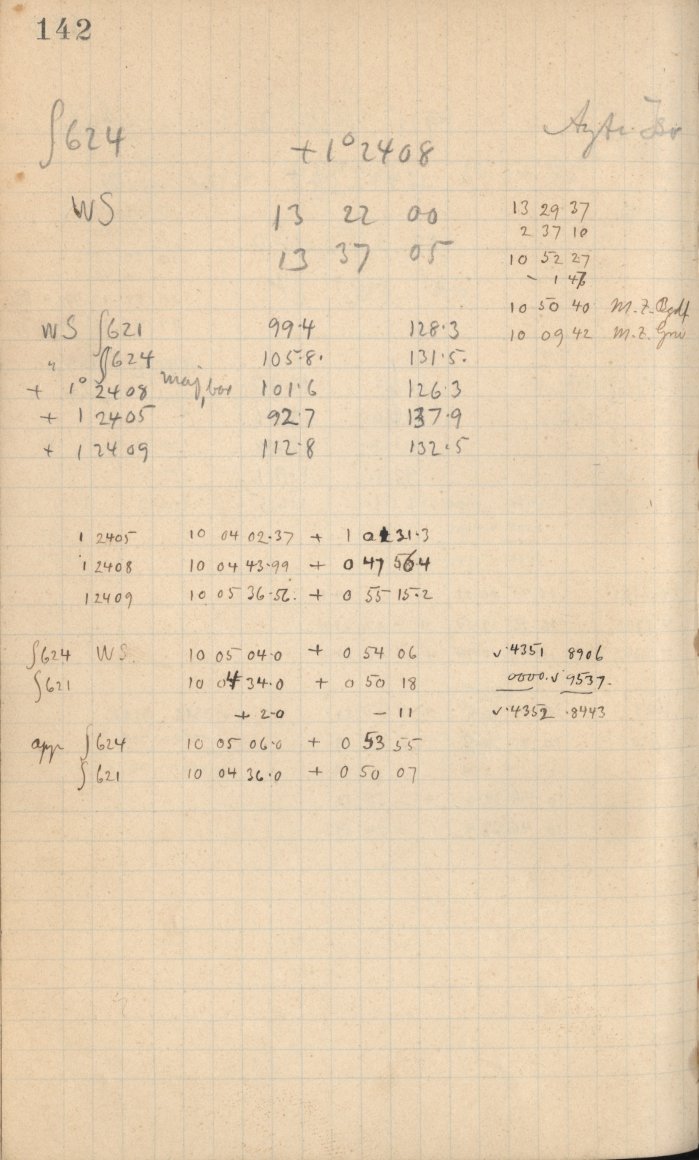 142
∫624 +1° 2408
WS 13 22 00
13 37 05
13 29 37
2 37 10
10 52 27
– 1 47
10 50 40 M.Z. Bgdf
10 09 42 M.Z. Grw
WS ∫621 99.4 128.3
" ∫624 105.8. 131.5.
+ 1° 2408 maj, bor 101.6 126.3
+ 1 2405 92.7 137.9
+ 1 2409 112.8 132.5
1 2405 10 04 02.37 + 1 31.3
1 2408 10 04 43.99 + 0 47 56.4
1 2409 10 05 36.56. + 0 55 15.2
∫624 WS. 10 05 04.0 + 0 54 06 √.4351 8906
∫621 10 04 34.0 + 0 50 18 0000.√ 9537.
+ 2.0 – 11 √.4352 .8443
app ∫624 10 05 06.0 + 0 53 55
∫621 10 04 36.0 + 0 50 07